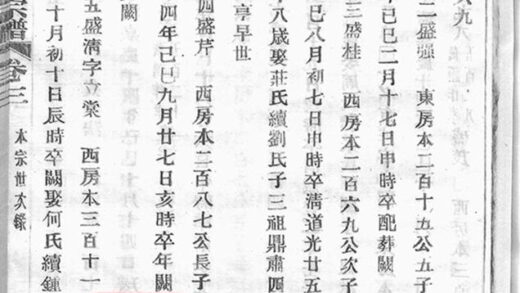 二盛强 東房本二百十五公五子
年己巳二月十七日申時卒配葬闕
三盛桂 西房本二百六九公次子
巳八月初七日申時卒清道光廿五
八歲娶莊氏續劉氏子三祖鼎肅四
亭早世
四盛芹 西房本二百八七公長子
四年己巳九月廿七日亥時卒年闕
闕
五盛淸字立棠 西房本三百十一
十月初十日辰時卒闕娶何氏續鍾
宗譜 卷三 本宗世次錄